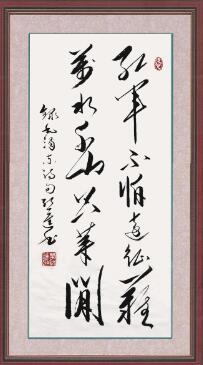 红军不怕远征难
万水千山只等闲
录毛泽东诗句